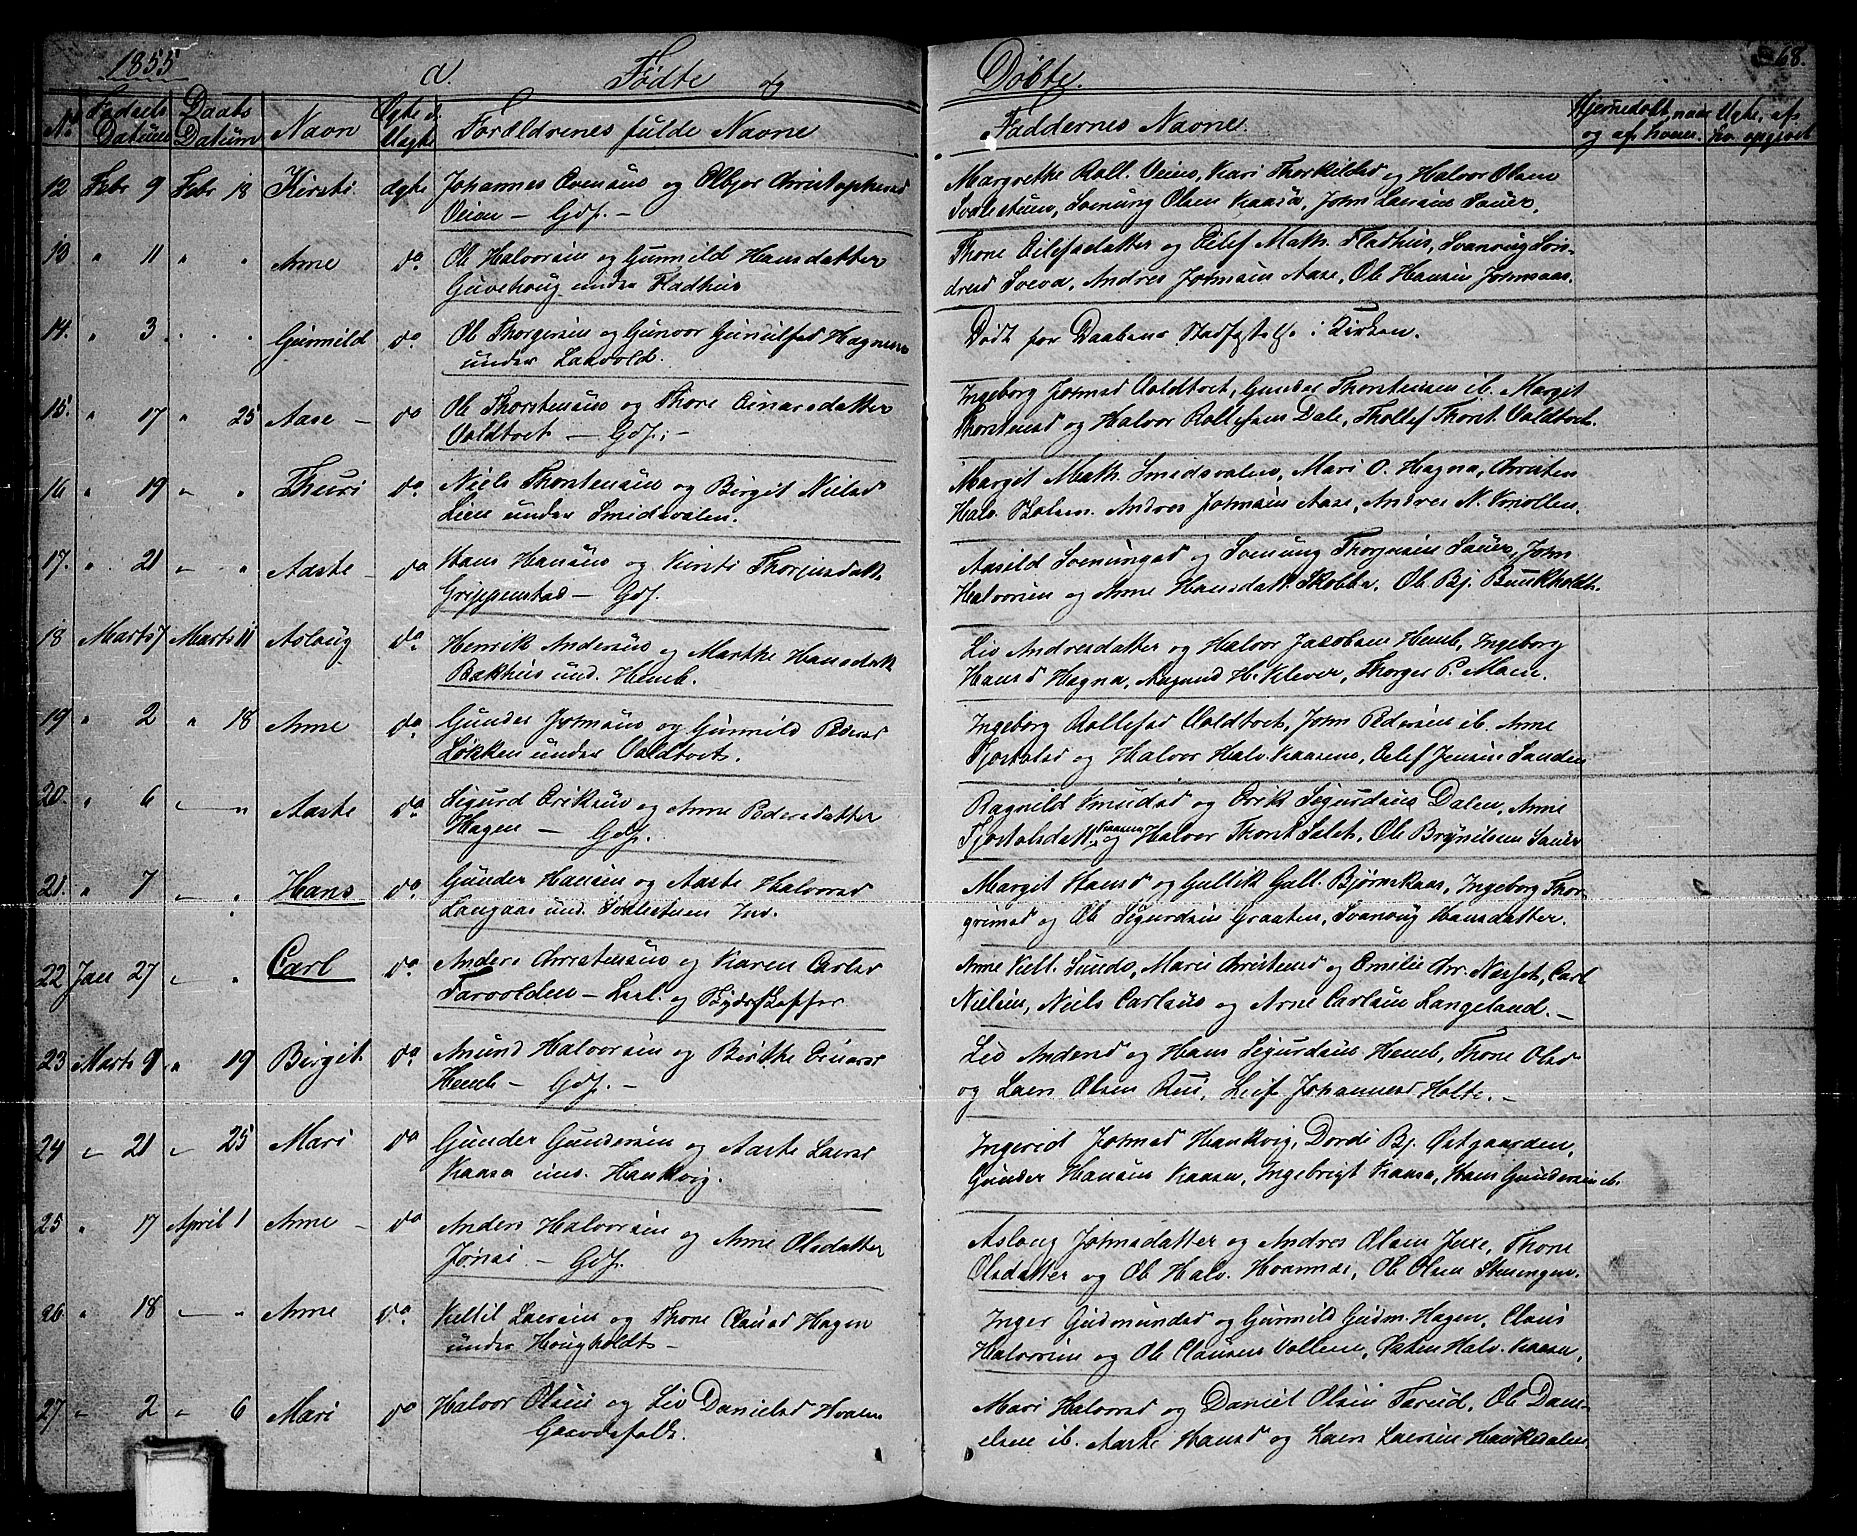 1855
a. Fødte og Døbte.
68.
No Fødsels Datum Daabs Datum Navn Ægte el. Uægte Forældrenes fulde Navne Faddernes Navne. Hjemmedøbt, naar og af hvem. Uægte, af hv. opgivet
12 Febr 9 Febr 18 Kirsti ægte Johannes Evensens og Olbjør Christophersd
Veien - Gdf. -
Margrethe Roll. Veiens, Kari Thorkildsd og Halvor Olsen
Svalestuens, Svenung Olsen Kaasa, John Larsens Sauer,
13 " 11 " " Anne do Ole Halvorsens og Gunnild Hansdatter
Guvehoug under Fladhus
Thone Eilefsdatter og Eilef Math. Fladhus, Svanoug
Sveva, Andres Johnsens Aase, Ole Hansen Jønnsaas.
14. " 3 " " Gunnild do Ole Thorgersen og Gunvor Gunulfsd Hagnen
under Laavold.
Dødt før Daabens Stadfæstelse i Kirken.
15. " 17 " 25 Aase - do Ole Thorstensens og Thore Einarsdatter
Valdtvet - Gdf; -
Ingeborg Johnsd Valdtvet, Gunder Thorstensen ib. Margit
Thorstensd og Halvor Rollefsen Dale, Thollef Thorst. Valdtvet.
16 " 19 " " Thuri do Niels Thorstensens og Birgit Nielsd
Lien under Smidsvalen.
Margit Math. Smidsvalens, Mari O. Hagna, Christen
Halv. Andres Johnsens Aase, Andres N. Knollen.
17. " 21 " " Aaste - do Hans Hansens og Kirsti Thorjusdatt.
Grippenstad - Gdf.
Aasild Svenungsd og Svenung Thorjusens Sauer, John
Halvorsen og Anne Hansdatt. Skobba, Ole Bj. Bunkholdt.
18 Marts 7 Marts 11 Aslaug do Henrik Andersens og Marthe Hansdatt
Bakhus und. Hemb.
Liv Andresdatter og Halvor Jacobsen Hemb, Ingeborg
Hansd Hagna, Aagund H. Klever, Thorger P. Moen.
19 " 2 " 18 Anne do Gunder Johnsens og Gunnild Pedersd
Løkken under Valdtvet.
Ingeborg Rollefsd Valdtvet, John Pedersen ib. Anne
Tjostolsd og Halvor Halv. Kaasens, Olef Jensens Sanden
20. " 6 " " Aaste do Sigurd Eriksens og Anne Pedersdatter
Hagen - Gdf.
Ragnild Knudsd og Erik Sigurdsens Dalen, Anne
Tjostolsdatt. Kaasen og Halvor Thorst. Salet, Ole Brynilsens Sauer
21. " 7 " " Hans do Gunder Hansen og Aaste Halvorsd
Langaas und. Svalestuen Inv.
Margit Hansd og Gullik Gull. Bjørnskaas, Ingeborg Thor-
grimsd og Ole Sigurdsen Graaten, Svanoug Hansdatter.
22 Jan 27 " " Carl do Anders Christensens og Karen Carlsd
Farvolden - Lærl. og
Anne Kitt. Sunds, Mari Christensd og Emilie Chr. Næsset, Carl
Nielsen, Niels Carlsens og Arne Carlsen Langeland. -
23 Marts 9 " 19 Birgit do Anund Halvorsen og Birthe Einarsd
Hemb - Gdf. -
Liv Andersd og Hans Sigurdsens Hemb, Thone Olsd
og Lars Olsen Rui, Leif Johannesd Holte. -
24 " 21 " 25 Mari do Gunder Gundersen og Aaste Larsd
Kaasa und. Haukvig.
Ingerid Johnsd Haukvig, Dordi Bj. Østgaarden,
Gunder Hansens Kaasen, Ingebrigt Kaasa, Hans Gundersen ib.
25 " 17 April 1 Anne - do Anders Halvorsen og Anne Olsdatter
Jønsi - Gdf.
Aslaug Johnsdatter og Andres Olsen Juve, Thone
Olsdatter og Ole Halv. Hvammen, Ole Olsen Stusingen.
26 " 18 " " Anne do Kittil Larsens og Thone Clausd Hagen
under Hougholdt -
Inger Gudmundsd og Gunnild Gudm. Hagen, Claus
Halvorsen og Ole Clausen Vollene, Østen Halv. Kaasa,
27 " 2 " 6 Mari do Halvor Olsen og Liv Danielsd Hvalen
Gaardsfolk.
Mari Halvorsd og Daniel Olsen Farud, Ole Dani-
elsen ib. Aaste Hansd og Lars Larsen Haukedalen